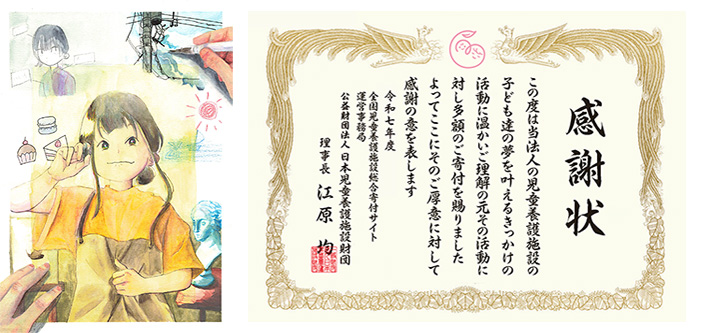 感謝状
この度は当法人の児童養護施設の
子ども達の夢を叶えるきっかけの
活動に温かいご理解の元その活動に
対し多額のご寄付を賜りました
よってここにそのご厚意に対して
感謝の意を表します
令和七年度
全国児童養護施設総合寄付サイト
運営事務局
公益財団法人日本児童養護施設財団
理事長 江原 均